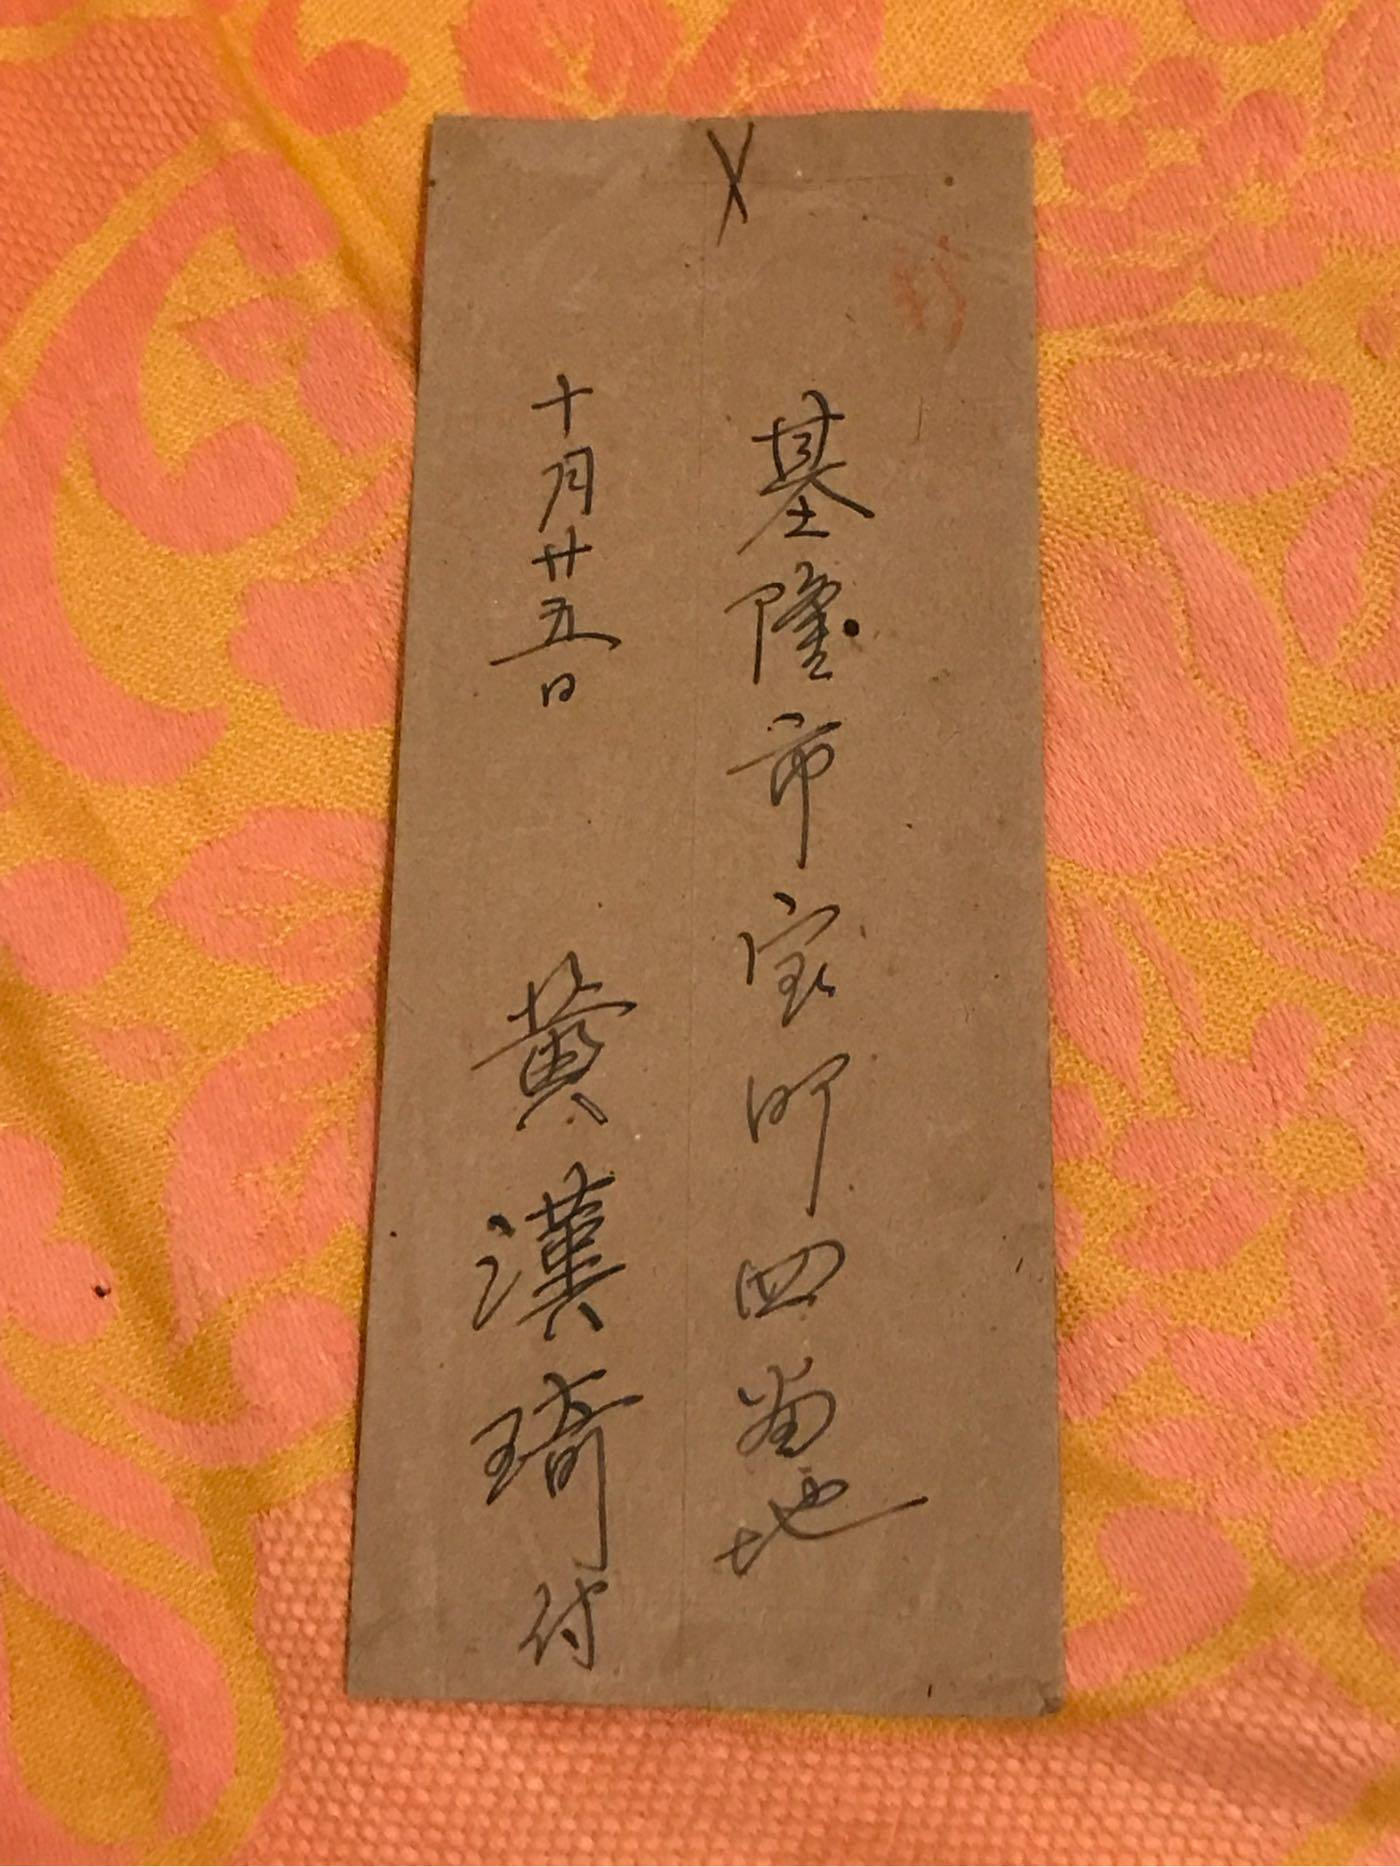 基隆市宝町四番地
十月廿五日　黄漢琦付